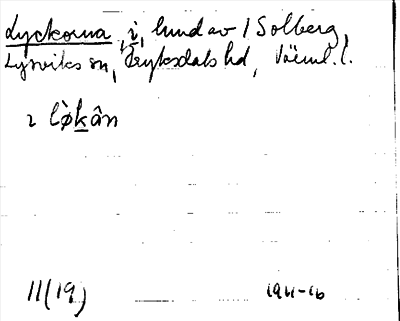 Lyckorna, i, hmd av 1 Solberg,
Lysviks sn, Fryksdals hd, Värml. l.
ı lø̀kân
11(19)
1911-16